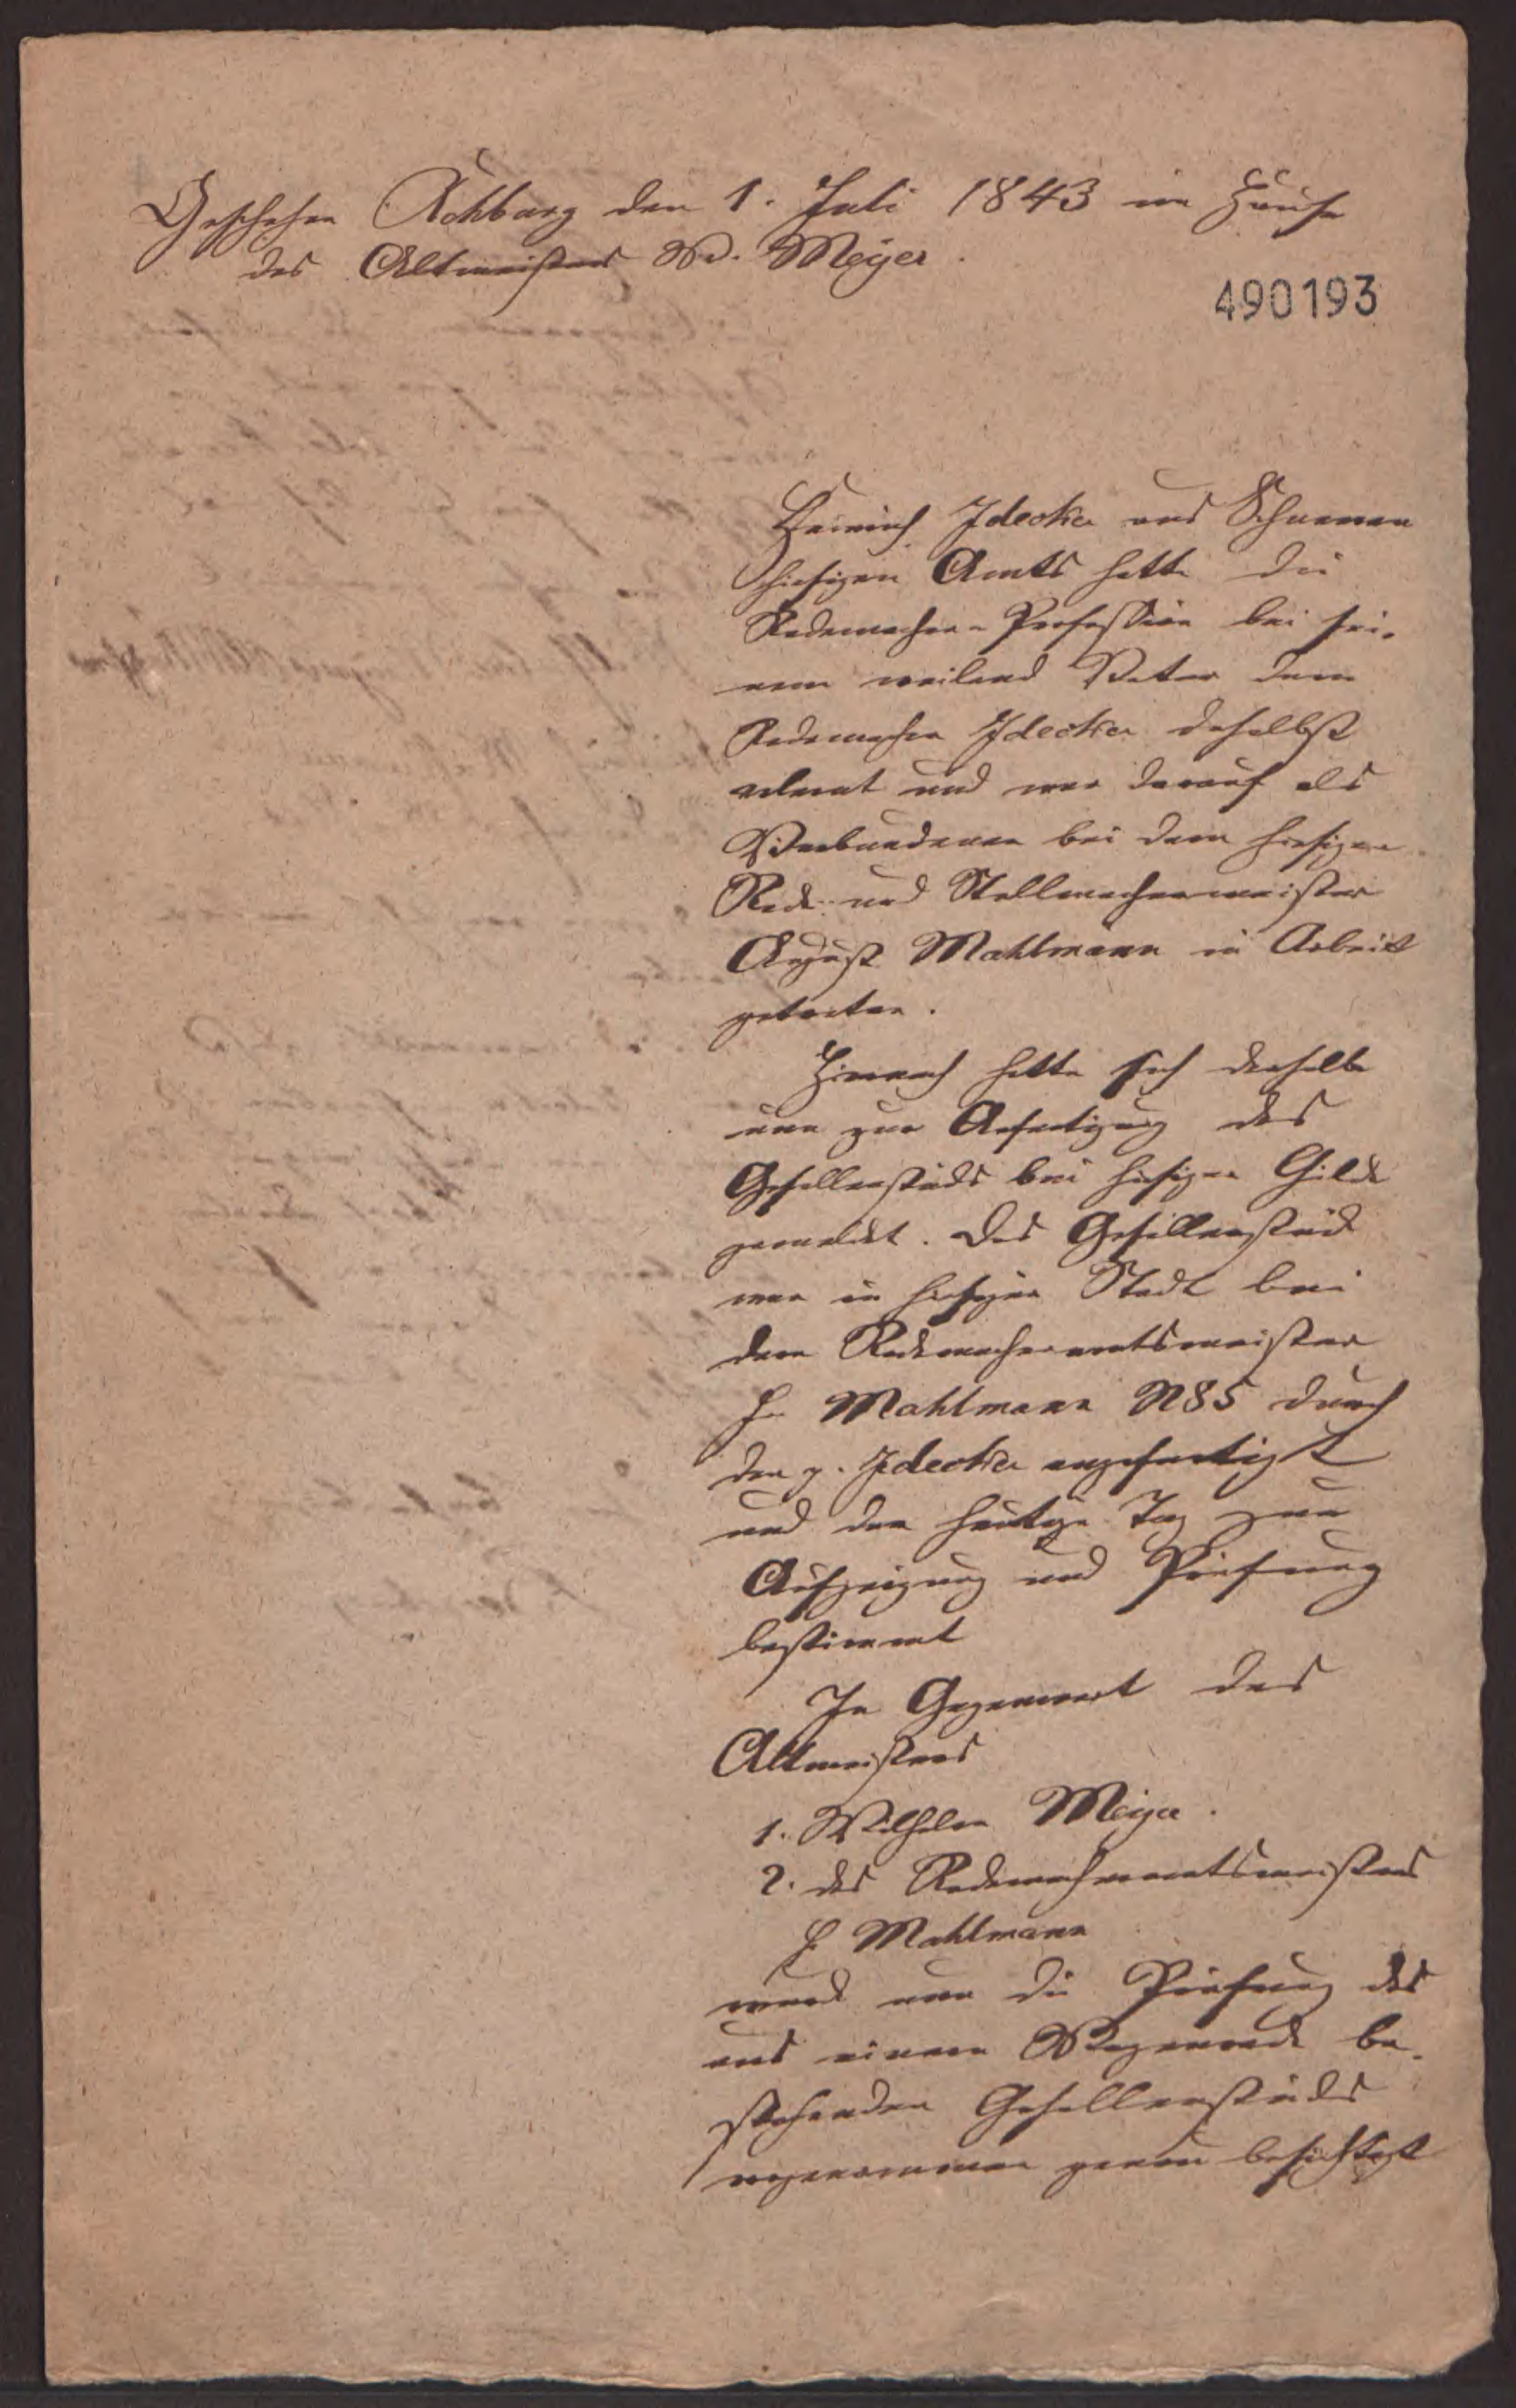 Geschehen Rehburg den 1. Juli 1843 im Hause
des Altmeisters W. Meyer.
490193
Heinrich Idecker aus Schneeren
hiesigen Amts hatte die
Rademacher-Profession bei sei-
nem weiland Vater dem
Rademacher Idecker daselbst
erlernt und war darauf als
Verbundener bei dem hiesigen
Rade- und Stellmachermeister
August Mahlmann in Arbeit
getreten.
Hiernach hatte sich derselbe
nun zur Anfertigung des
Gesellenstücks bei hiesiger Gilde
gemeldet. Das Gesellenstück
war in hiesiger Stadt bei
dem Rademacheramtsmeister
H. Mahlmann N 85 durch
den p. Idecker angefertigt
und der heutige Tag zur
Aufzeigung und Prüfung
bestimmt
In Gegenwart des
Altmeisters
1. Wilhelm Meyer.
2. des Rademacheramtsmeisters
H. Mahlmann
ward nun die Prüfung des
aus einem Wagenrade be-
stehenden Gesellenstücks
vorgenommen genau besichtigt